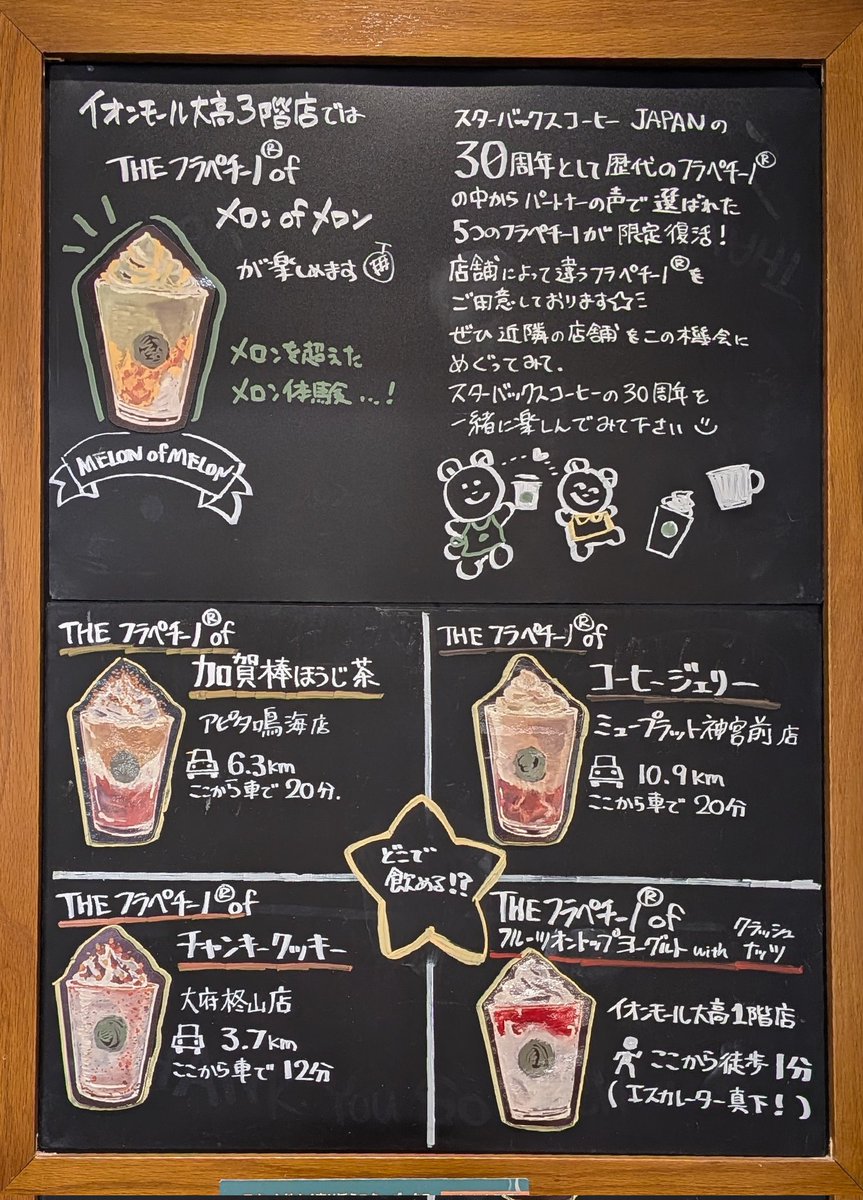 イオンモール大高3階店では
THE フラペチーノ® of
メロン of メロン
が楽しめます
メロンを超えた
メロン体験...!
MELON of MELON
スターバックスコーヒー JAPANの
30周年として歴代のフラペチーノ®
の中からパートナーの声で選ばれた
5つのフラペチーノが限定復活!
店舗によって違うフラペチーノ®を
ご用意しております☆
ぜひ近隣の店舗をこの機会に
めぐってみて.
スターバックスコーヒーの30周年を
一緒に楽しんでみて下さい
THE フラペチーノ® of
加賀棒ほうじ茶
アピタ鳴海店
6.3km
ここから車で20分.
THE フラペチーノ® of
コーヒージェリー
ミュープラット神宮前店
10.9km
ここから車で20分
どこで
飲める!?
THE フラペチーノ® of
チャンキークッキー
大府柊山店
3.7km
ここから車で12分
THE フラペチーノ® of
フルーツオントップヨーグルト with クラッシュナッツ
イオンモール大高1階店
ここから徒歩1分
(エスカレーター真下!)